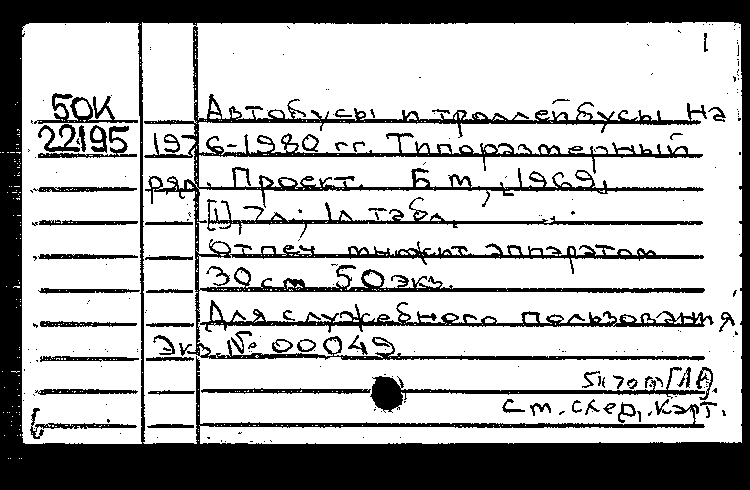 1
50К Автобусы и троллейбусы на
22195 1976-1980 гг. Типоразмерный
ряд. Проект. Б. м., [1969]
[1], 7 л.; 1 л табл.
Отпеч множит. аппаратом
30 см 50 экз.
Для служебного пользования.
Экз. № 00049.
см. след. карт.